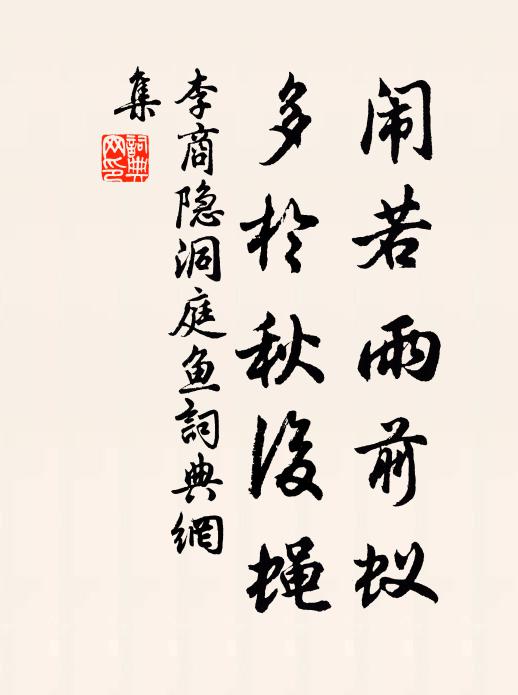 闹若雨前蚁
多於秋後蝇
李商隐洞庭鱼詞典網
集
詞典網印